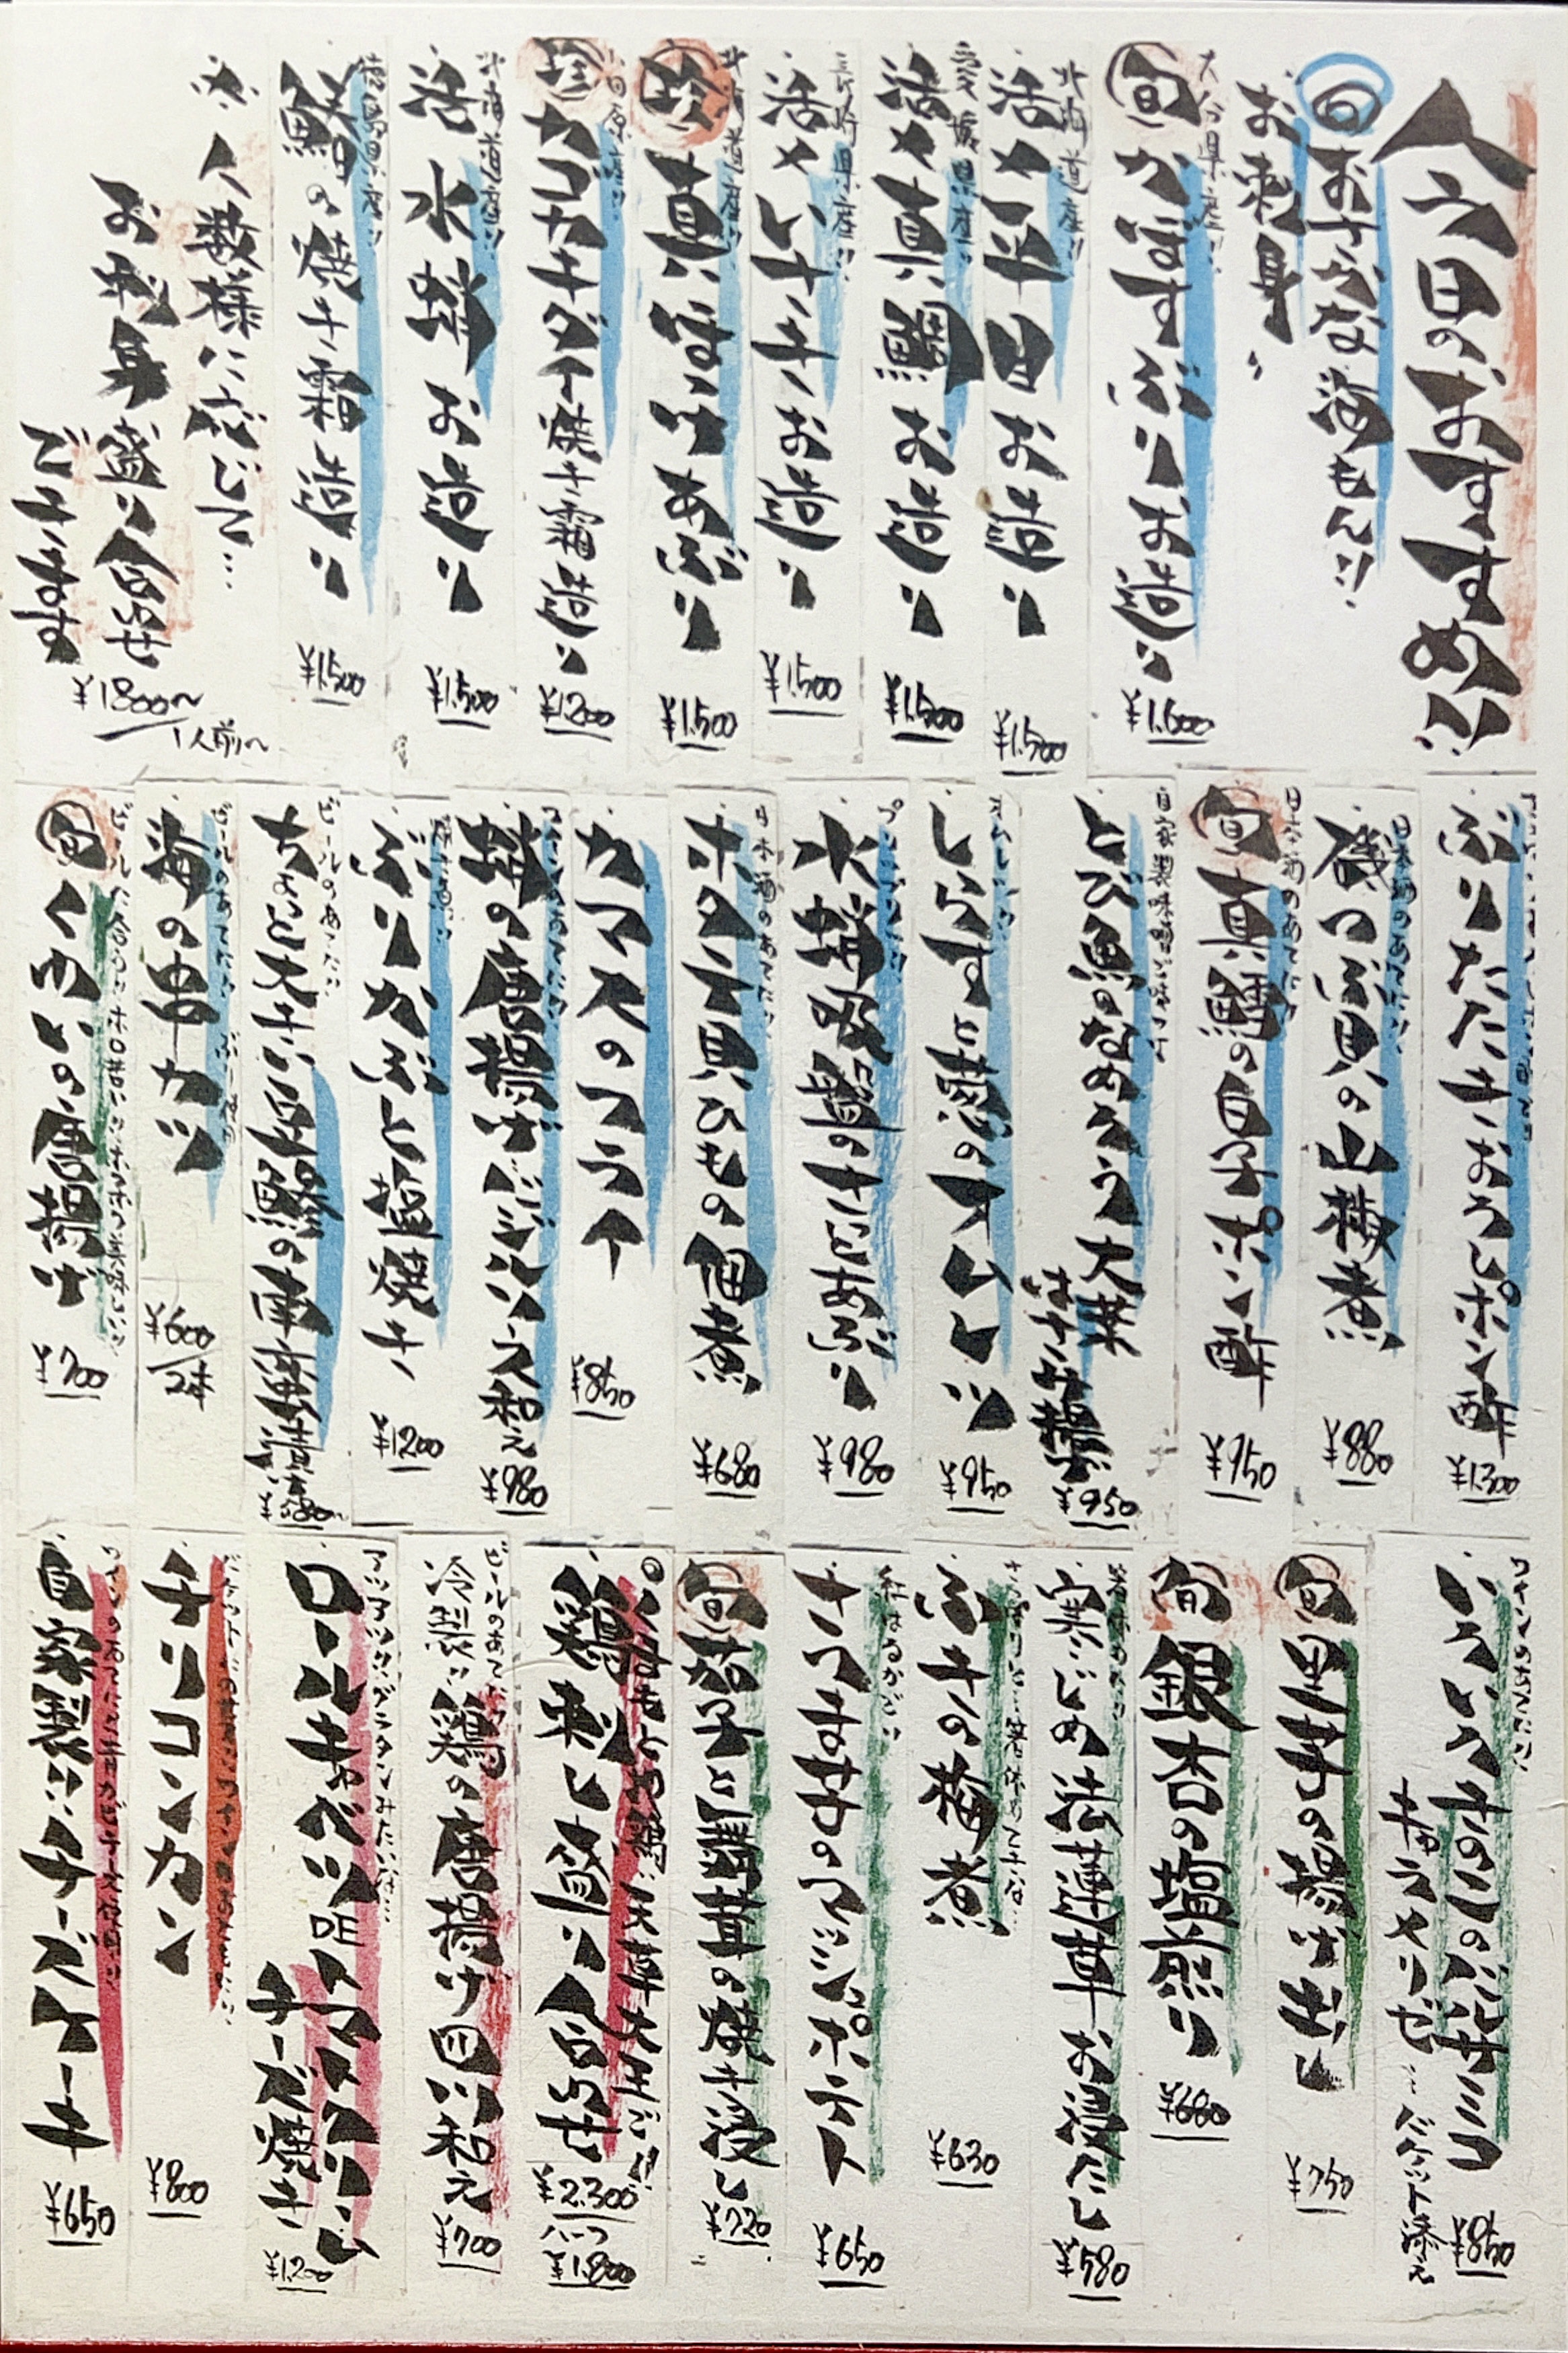 今日のおすすめ!!
旬おさかな海もん!!
お刺身
大分県産!!
旬かぼすぶりお造り
¥1.600
北海道産!!
活〆平目お造り
¥1.500
愛媛県産!!
活〆真鯛お造り
¥1.500
長崎県産!!
活〆いさきお造り
¥1.500
北海道産!!
珍真ほっけあぶり
¥1.500
小田原産!!
珍カゴカキダイ焼き霜造り
¥1200
北海道産!!
活水蛸お造り
¥1.500
徳島県産!!
鰆の焼き霜造り
¥1.500
人数様に応じて…
お刺身盛り合せ
できます
¥1800〜
1人前〜
ぶりたたきおろしポン酢
¥1.300
日本酒のあてに!!
磯つぶ貝の山椒煮
¥880
日本酒のあてに!!
旬真鱈の白子ポン酢
¥950
自家製味噌で味つけ
とび魚のなめろう大葉
はさみ揚げ
¥950
オムレツ!!
しらすと葱のオムレツ
¥950
水蛸吸盤のさっとあぶり
¥980
日本酒のあてに!!
ホタテ貝ひもの佃煮
¥680
カマスのフライ
¥850
ワインのあてに!!
蛸の唐揚げバジルソース和え
¥980
ぶりかぶと塩焼き
¥1200
ビールのあてに!!
ちょっと大きい豆鯵の南蛮漬
¥580〜
ビールのあてに!!
海の串カツ
¥600/2本
旬くわいの唐揚げ
¥700
ワインのあてに!!
いろいろきのこのバルサミコ
キャラメリゼ…バゲット添え
¥850
旬里芋の揚げ出し
¥750
旬銀杏の塩煎り
¥680
箸休めに!!
寒じめ法蓮草お浸だし
¥580
さっぱりと…箸休めてきな…
ふきの梅煮
¥630
紅はるかです!!
さつま芋のマッシュポテト
¥650
旬茄子と舞茸の焼き浸し
¥720
鶏刺し盛り合せ
¥2.300
ハーフ
¥1.800
ビールのあてに!!
冷製!!鶏の唐揚げ四川和え
¥700
アツアツ!!グラタンみたいな…
ロールキャベツ呍マッシュルーム
チーズ焼き
¥1.200
チリコンカン
¥800
自家製!!チーズケーキ
¥650